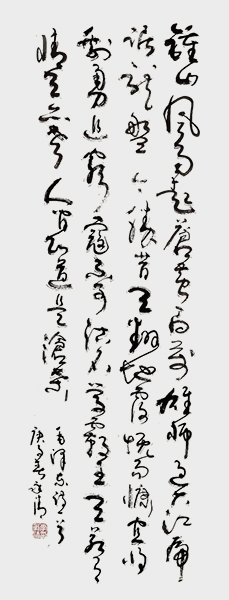 鍾山風雨起蒼黃百萬雄師過大江虎
踞龍盤今勝昔天翻地覆慨而慷宜將
剩勇追窮寇不可沽名學霸王天若有
情天亦老人間正道是滄桑
毛澤東詩一首